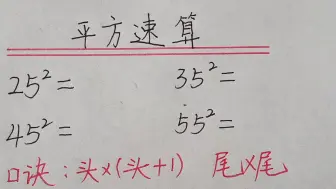 平方速算
25²= 35²=
45²= 55²=
口诀:头×(头+1) 尾×尾